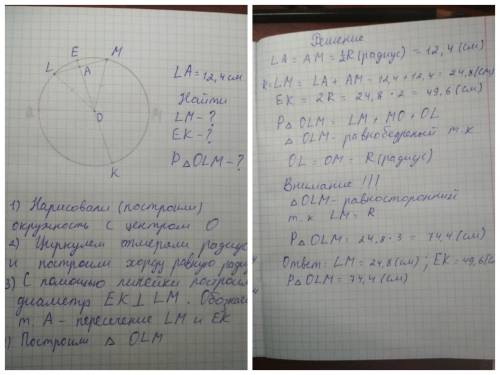 E
M
L
A
O
K
LA = 12,4 см
Найти
LM - ?
EK - ?
P△OLM - ?
1) Нарисовали (построили)
окружность с центром O
2) Циркулем отмеряли радиус
и построили хорду равную
3) С помощью линейки построи
диаметр EK ⊥ LM. Обознач
т. A - пересечение LM и EK
). Построим △ OLM
Решение
LA = AM = ½R (радиус) = 12,4 (см)
R=LM = LA + AM = 12,4 + 12,4 = 24,8 (см)
EK = 2R = 24,8 · 2 = 49,6 (см)
P△OLM = LM + MO + OL
△ OLM - равнобедренный т.к
OL = OM = R (радиус)
Внимание !!!
△OLM - равносторонний
т.к LM = R
P△OLM = 24,8 · 3 = 74,4 (см)
Ответ: LM = 24,8 (см); EK = 49,6 (см
P△OLM = 74,4 (см)